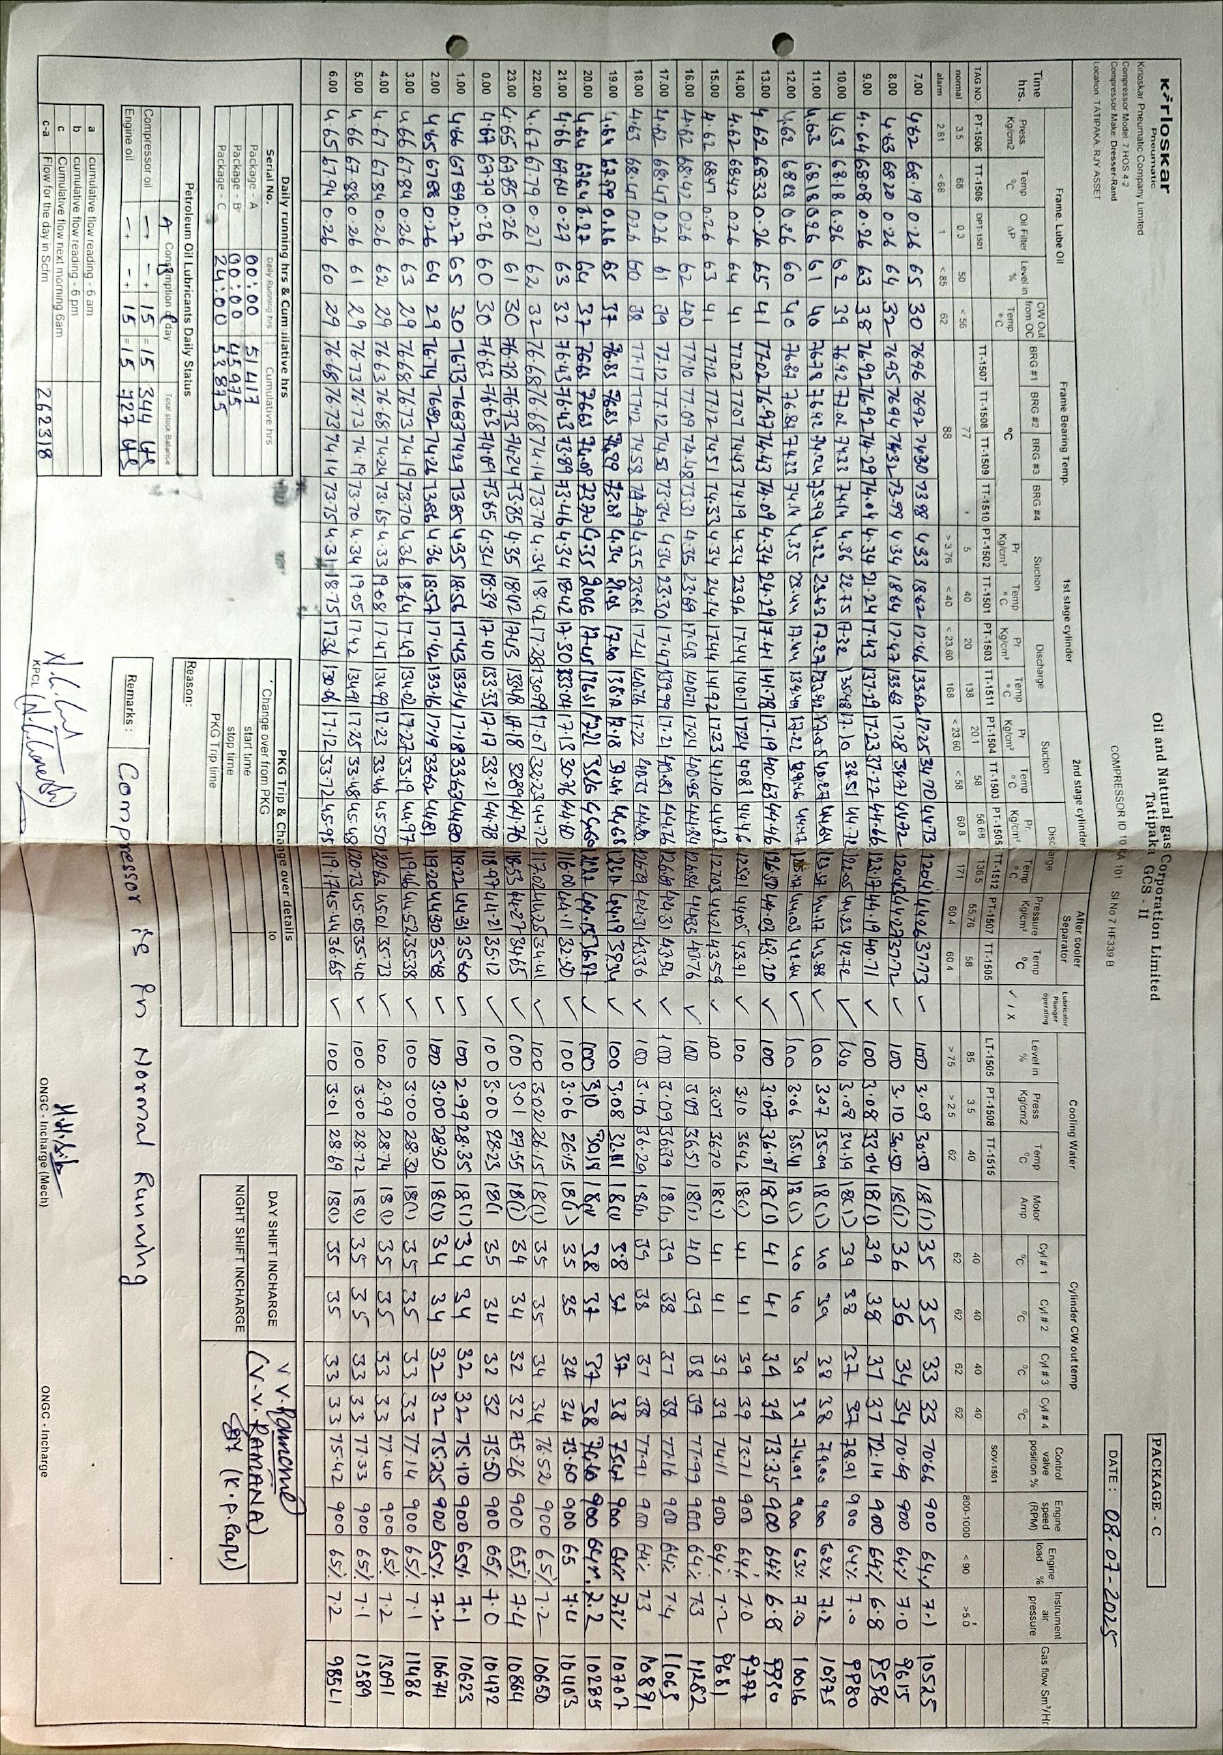 Kirloskar
Pneumatic
Kirloskar Pneumatic Company Limited
Compressor Model: 7 HOS 4-2
Compressor Make: Dresser-Rand
Location: TATIPAKA, RJY ASSET
Oil and Natural gas Corporation Limited
Tatipaka GCS - II
COMPRESSOR ID 10 KA 101 Sl No 7 HF339 B
PACKAGE - C
DATE : 08-07-2025
Time hrs. Frame. Lube Oil Frame Bearing Temp. 1st stage cylinder 2nd stage cylinder After cooler Separator Lubricator Plunger operating Cooling Water Cylinder CW out temp Control valve position % Engine speed (RPM) Engine load % Instrument air pressure Gas flow Sm³/Hr
Press Kg/cm2 Temp °C Oil Filter ΔP Level in % CW Out from OC Temp °C BRG #1 BRG #2 BRG #3 BRG #4 °C Suction Discharge Suction Discharge Pressure Kg/cm² Temp °C ✓ / X Level in % Press Kg/cm2 Temp °C Motor Amp Cyl # 1 Cyl # 2 Cyl # 3 Cyl # 4
Pr. Kg/cm² Temp °C Pr. Kg/cm² Temp °C Pr. Kg/cm² Temp °C Pr. Kg/cm² Temp °C °C °C °C °C
TAG NO. PT-1506 TT-1506 DPT-1501 TT-1507 TT-1508 TT-1509 TT-1510 PT-1502 TT-1501 PT-1503 TT-1511 PT-1504 TT-1503 PT-1505 TT-1512 PT-1507 TT-1505 LT-1505 PT-1508 TT-1515 SOV-1501
normal 3.5 68 0.3 50 < 56 77 5 40 20 138 20.1 58 56.68 136.5 55.76 58 85 3.5 40 40 40 40 40 800-1000 < 90 >5.0
alarm 2.81 < 68 1 < 85 62 88 > 3.76 < 40 < 23.60 168 < 23.60 < 58 60.8 171 60.4 60.4 > 75 > 2.5 62 62 62 62 62
7.00 4.62 68.19 0.26 65 30 7696 7692 7430 7398 4.33 18.62 17.46 133.62 17.25 3470 44.73 12041 4426 37.73 ✓ 100 3.09 30.50 18(1) 35 35 33 33 70.66 900 64% 7.1 10525
8.00 4.63 6820 0.26 64 32 7695 7694 7432 73.99 4.34 1864 17.47 133.63 17.28 3471 4472 120.43 44.27 37.72 ✓ 100 3.10 30.50 18(1) 36 36 34 34 70.69 900 64% 7.0 9615
9.00 4.64 68.08 0.26 63 38 76.92 76.92 74.29 74.04 4.34 21.24 17.43 137.29 17.23 37.22 44.66 123.17 44.19 40.71 ✓ 100 3.08 33.04 18(1) 39 38 37 37 72.14 900 64% 6.8 9596
10.00 4.63 68.18 0.26 62 39 76.92 77.02 74.33 74.14 4.36 22.75 17.32 135.48 17.10 38.51 44.72 122.05 44.23 42.72 ✓ 100 3.08 34.19 18(1) 39 38 37 37 78.91 900 64% 7.0 9980
11.00 4.63 6818 026 61 40 7678 7642 74.24 73.99 4.32 23.63 17.27 17.05 40.27 44.64 44.17 43.88 ✓ 100 3.07 35.09 18(1) 40 39 38 38 74.00 900 62% 7.2 10375
12.00 4.62 6828 0.26 60 40 76.87 76.87 7433 74.14 4.35 17.44 17.22 44.47 44.03 42.64 ✓ 100 3.06 35.41 18(1) 40 40 39 39 74.01 900 63% 7.0 10016
13.00 4.62 68.33 0.26 65 41 77.02 76.97 74.43 74.09 4.34 24.29 17.41 141.78 17.19 40.63 44.46 126.50 44.03 43.20 ✓ 100 3.07 36.07 18(1) 41 41 39 39 73.35 900 64% 6.8 9930
14.00 4.62 6842 0.26 64 41 77.02 7707 7443 74.19 4.34 2396 17.44 140.17 1724 4081 44.46 12591 4405 43.91 ✓ 100 3.10 3642 18(1) 41 41 39 39 73.71 900 64% 7.0 9777
15.00 4.62 6847 0.26 63 41 77.12 77.12 7451 74.33 4.34 24.14 1744 14192 17.23 41.10 44.62 12703 4421 43.59 ✓ 100 3.07 3670 18(1) 41 41 39 39 7411 900 64% 7.2 9681
16.00 4.62 68.42 026 62 40 77.10 77.09 74.48 73.31 4.35 23.69 17.43 140.71 17.24 40.95 44.84 126.84 4435 43.76 ✓ 100 3.09 36.51 18(1) 40 39 38 39 77.99 900 64% 7.3 11282
17.00 4.62 68.47 0.26 61 39 77.12 77.12 74.53 73.34 4.34 23.30 17.47 139.99 17.21 40.81 44.76 126.69 44.31 43.54 ✓ 100 3.09 3639 18(1) 39 38 37 38 77.16 900 64% 7.4 11063
18.00 4.63 68.47 0.26 60 38 77.17 77.12 74.58 74.49 4.35 23.86 17.41 140.76 17.22 40.73 44.80 126.79 44.31 43.36 ✓ 100 3.10 36.29 18(1) 39 38 37 38 77.91 900 64% 7.3 10891
19.00 4.64 67.99 0.26 65 37 76.83 76.83 73.09 4.34 21.93 17.40 17.18 44.68 44.19 3934 ✓ 100 3.08 32.11 38 37 37 38 7542 900 64% 7.3 10707
20.00 4.64 6764 0.27 64 37 76.63 7663 74.09 7370 4.35 2096 17.45 136.51 17.21 3526 44.15 36.87 ✓ 100 310 3018 38 37 37 38 900 64% 7.2 10285
21.00 4.66 67.64 0.27 63 32 76.43 76.43 73.89 73.46 4.34 18.42 17.30 133.04 17.13 30.76 44.60 116.00 44.11 32.50 ✓ 100 3.06 26.15 18(1) 35 35 34 34 73.60 900 65 7.4 10403
22.00 4.67 67.79 0.27 62 32 76.68 76.68 74.14 73.70 4.34 18.42 17.28 13099 17.07 32.23 44.72 117.02 44.25 34.41 ✓ 100 3.02 26.15 18(1) 35 35 34 34 76.52 900 65% 7.2 10650
23.00 4.65 6785 0.26 61 30 76.78 76.73 7424 73.85 4.35 18.42 1743 133.48 17.18 3289 44.76 118.53 44.27 3465 ✓ 100 3.01 27.55 18(1) 34 34 32 32 75.26 900 65% 7.4 10864
0.00 4.67 67.79 0.26 60 30 76.63 76.63 74.09 7365 4.34 18.39 17.40 133.33 17.17 33.21 44.78 118.97 44.21 35.12 ✓ 100 3.00 28.23 18(1 35 34 32 32 73.50 900 65% 7.0 10472
1.00 4.66 6789 0.27 65 30 7673 7683 7429 7385 4.35 18.56 17.43 133.14 17.18 33.63 4480 119.22 4431 3560 ✓ 100 2.99 28.35 18(1) 34 34 32 32 75.10 900 65% 7.1 10623
2.00 4.65 6788 0.26 64 29 76.74 7682 74.26 7386 4.36 18.57 17.42 133.16 17.19 3362 4481 119.20 4430 35.68 ✓ 100 3.00 2830 18(1) 34 34 32 32 75.25 900 65% 7.2 10674
3.00 4.66 67.84 0.26 63 29 76.68 76.73 74.19 73.70 4.36 18.64 17.49 134.02 17.27 33.19 44.97 119.46 44.52 35.38 ✓ 100 3.00 28.32 18(1) 35 35 33 33 77.14 900 65% 7.1 11486
4.00 4.67 67.84 0.26 62 29 76.63 76.68 74.24 73.65 4.33 1908 17.47 134.99 17.23 33.46 45.50 120.63 45.01 35.73 ✓ 100 2.99 28.74 18(1) 35 35 33 33 77.40 900 65% 7.2 13091
5.00 4.66 67.88 0.26 61 29 76.73 76.73 74.19 73.70 4.34 19.05 1742 13491 17.25 33.48 45.48 120.73 45.05 35.40 ✓ 100 3.00 28.72 18(1) 35 35 33 33 77.33 900 65% 7.1 11589
6.00 4.65 67.94 0.26 60 29 76.68 76.73 74.14 73.75 4.31 18.75 17.36 130.06 17.12 33.72 45.95 119.17 45.44 36.65 ✓ 100 3.01 28.69 18(1) 35 35 33 33 75.42 900 65% 7.2 98541
Daily running hrs & Cumulative hrs
Serial No. Daily Running hrs Cumulative hrs
Package - A 00:00 51417
Package - B 00:00 45975
Package - C 24:00 53875
Petroleum Oil Lubricants Daily Status
A Consumption of day Total stock Balance
Compressor oil — + — + 15 = 15 344 Lts
Engine oil — + — + 15 = 15 727 Lts
a cumulative flow reading - 6 am
b cumulative flow reading - 6 pm
c Cumulative flow next morning 6am
c-a Flow for the day in Scfm 262318
PKG Trip & Change over details
Change over from PKG to
start time
stop time
PKG Trip time
Reason:
DAY SHIFT INCHARGE V V. Ramana
(V.V. RAMANA)
NIGHT SHIFT INCHARGE (K.P. Raju)
Remarks : Compressor is in Normal Running
KPCL (N.G. Ganesh)
ONGC - Incharge (Mech)
ONGC - Incharge